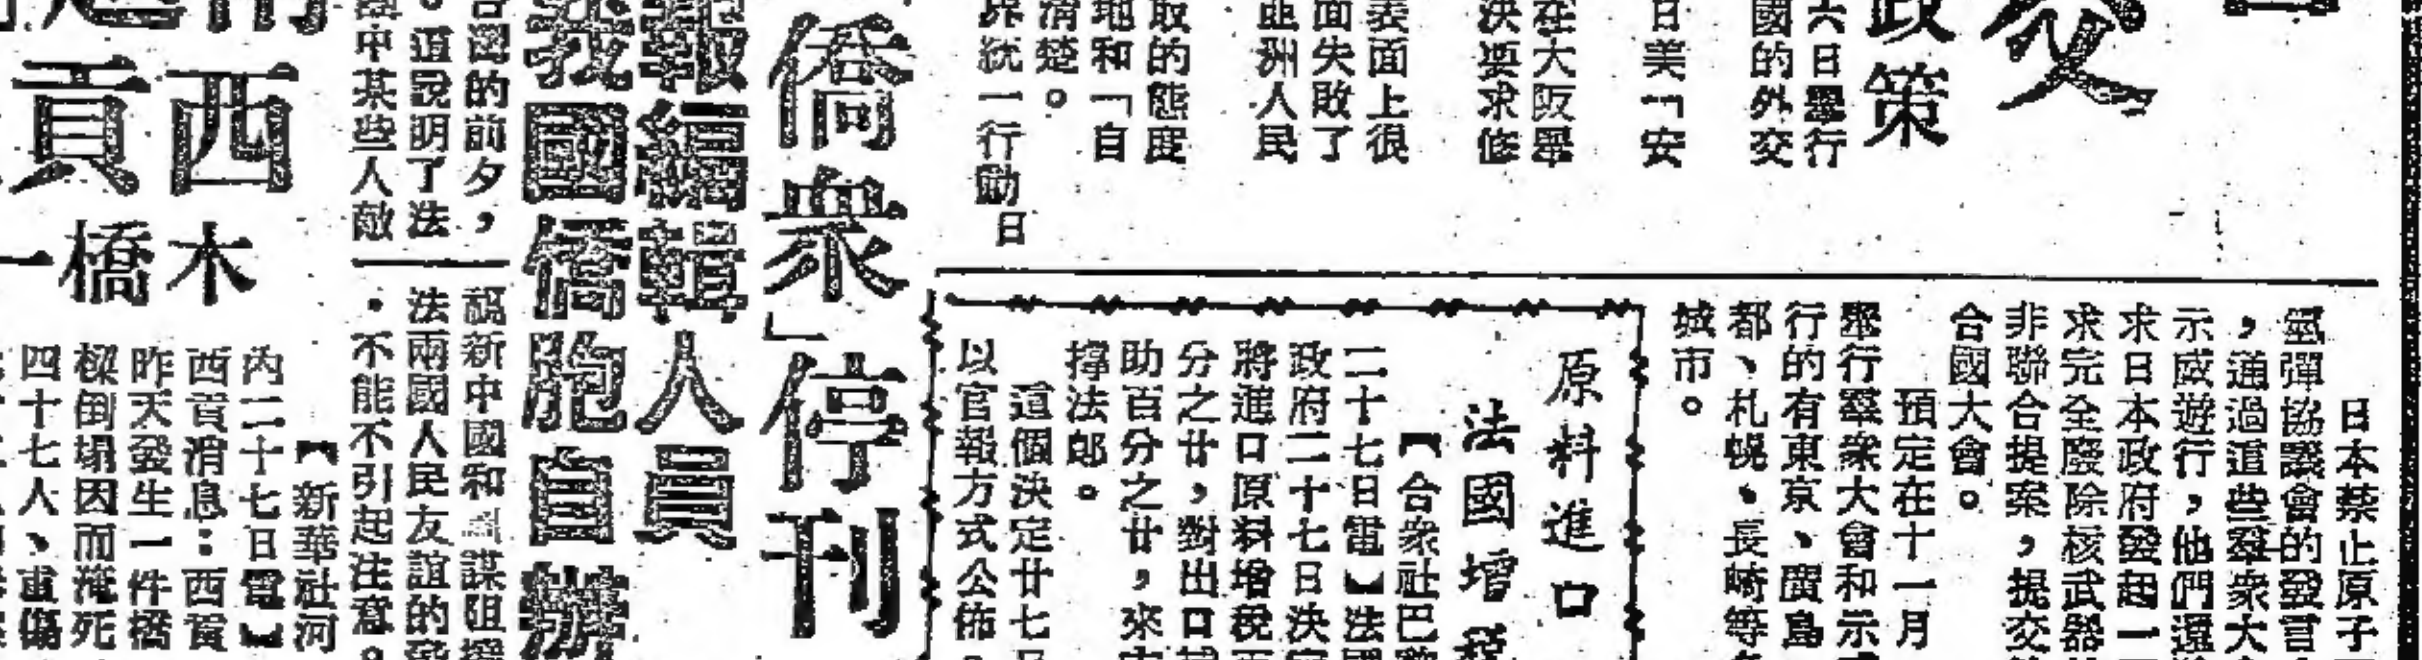 交
政策
六日舉行
國的外交
日美「安
在大阪舉
決要求修
表面上很
面失敗了
亞洲人民
取的態度
地和「自
清楚。
界統一行動
日
日本禁止原子
氫彈協議會的發言
，通過這些羣衆大
示威遊行，他們還
求日本政府發起一
求完全廢除核武器
非聯合提案，提交
合國大會。
預定在十一月
舉行羣衆大會和示
行的有東京、廣島
都、札幌、長崎等
城市。
原料進口
法國增稅
【合衆社巴黎
二十七日電】法國
政府二十七日決定
將進口原料增稅百
分之廿，對出口
助百分之廿，來
撑法郎。
這個決定廿七日
以官報方式公佈。
僑衆」停刊
報編輯人員
我國僑胞自辦
的前夕，
。這說明了法
中某些人敵
新中國和
謀阻
法兩國人民友誼的
，不能不引起注意。
西
貢
木
橋
一
【新華社河
內二十七日電】
西貢消息：西貢
昨天發生一件橋
樑倒塌因而淹死
四十七人、重傷